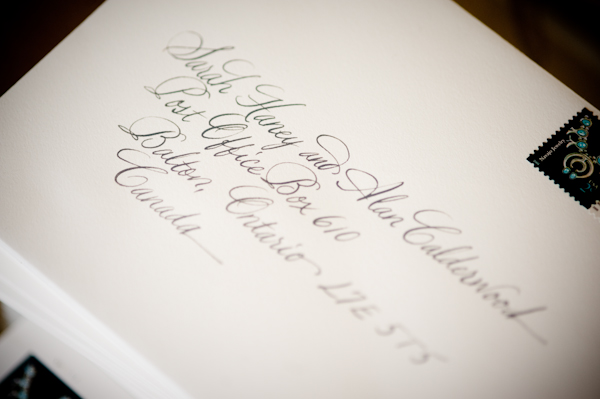 Sarah Haney and Alan Calderwood
Post Office Box 610
Balton, Ontario L7E 5T5
Canada
Navajo Jewelry